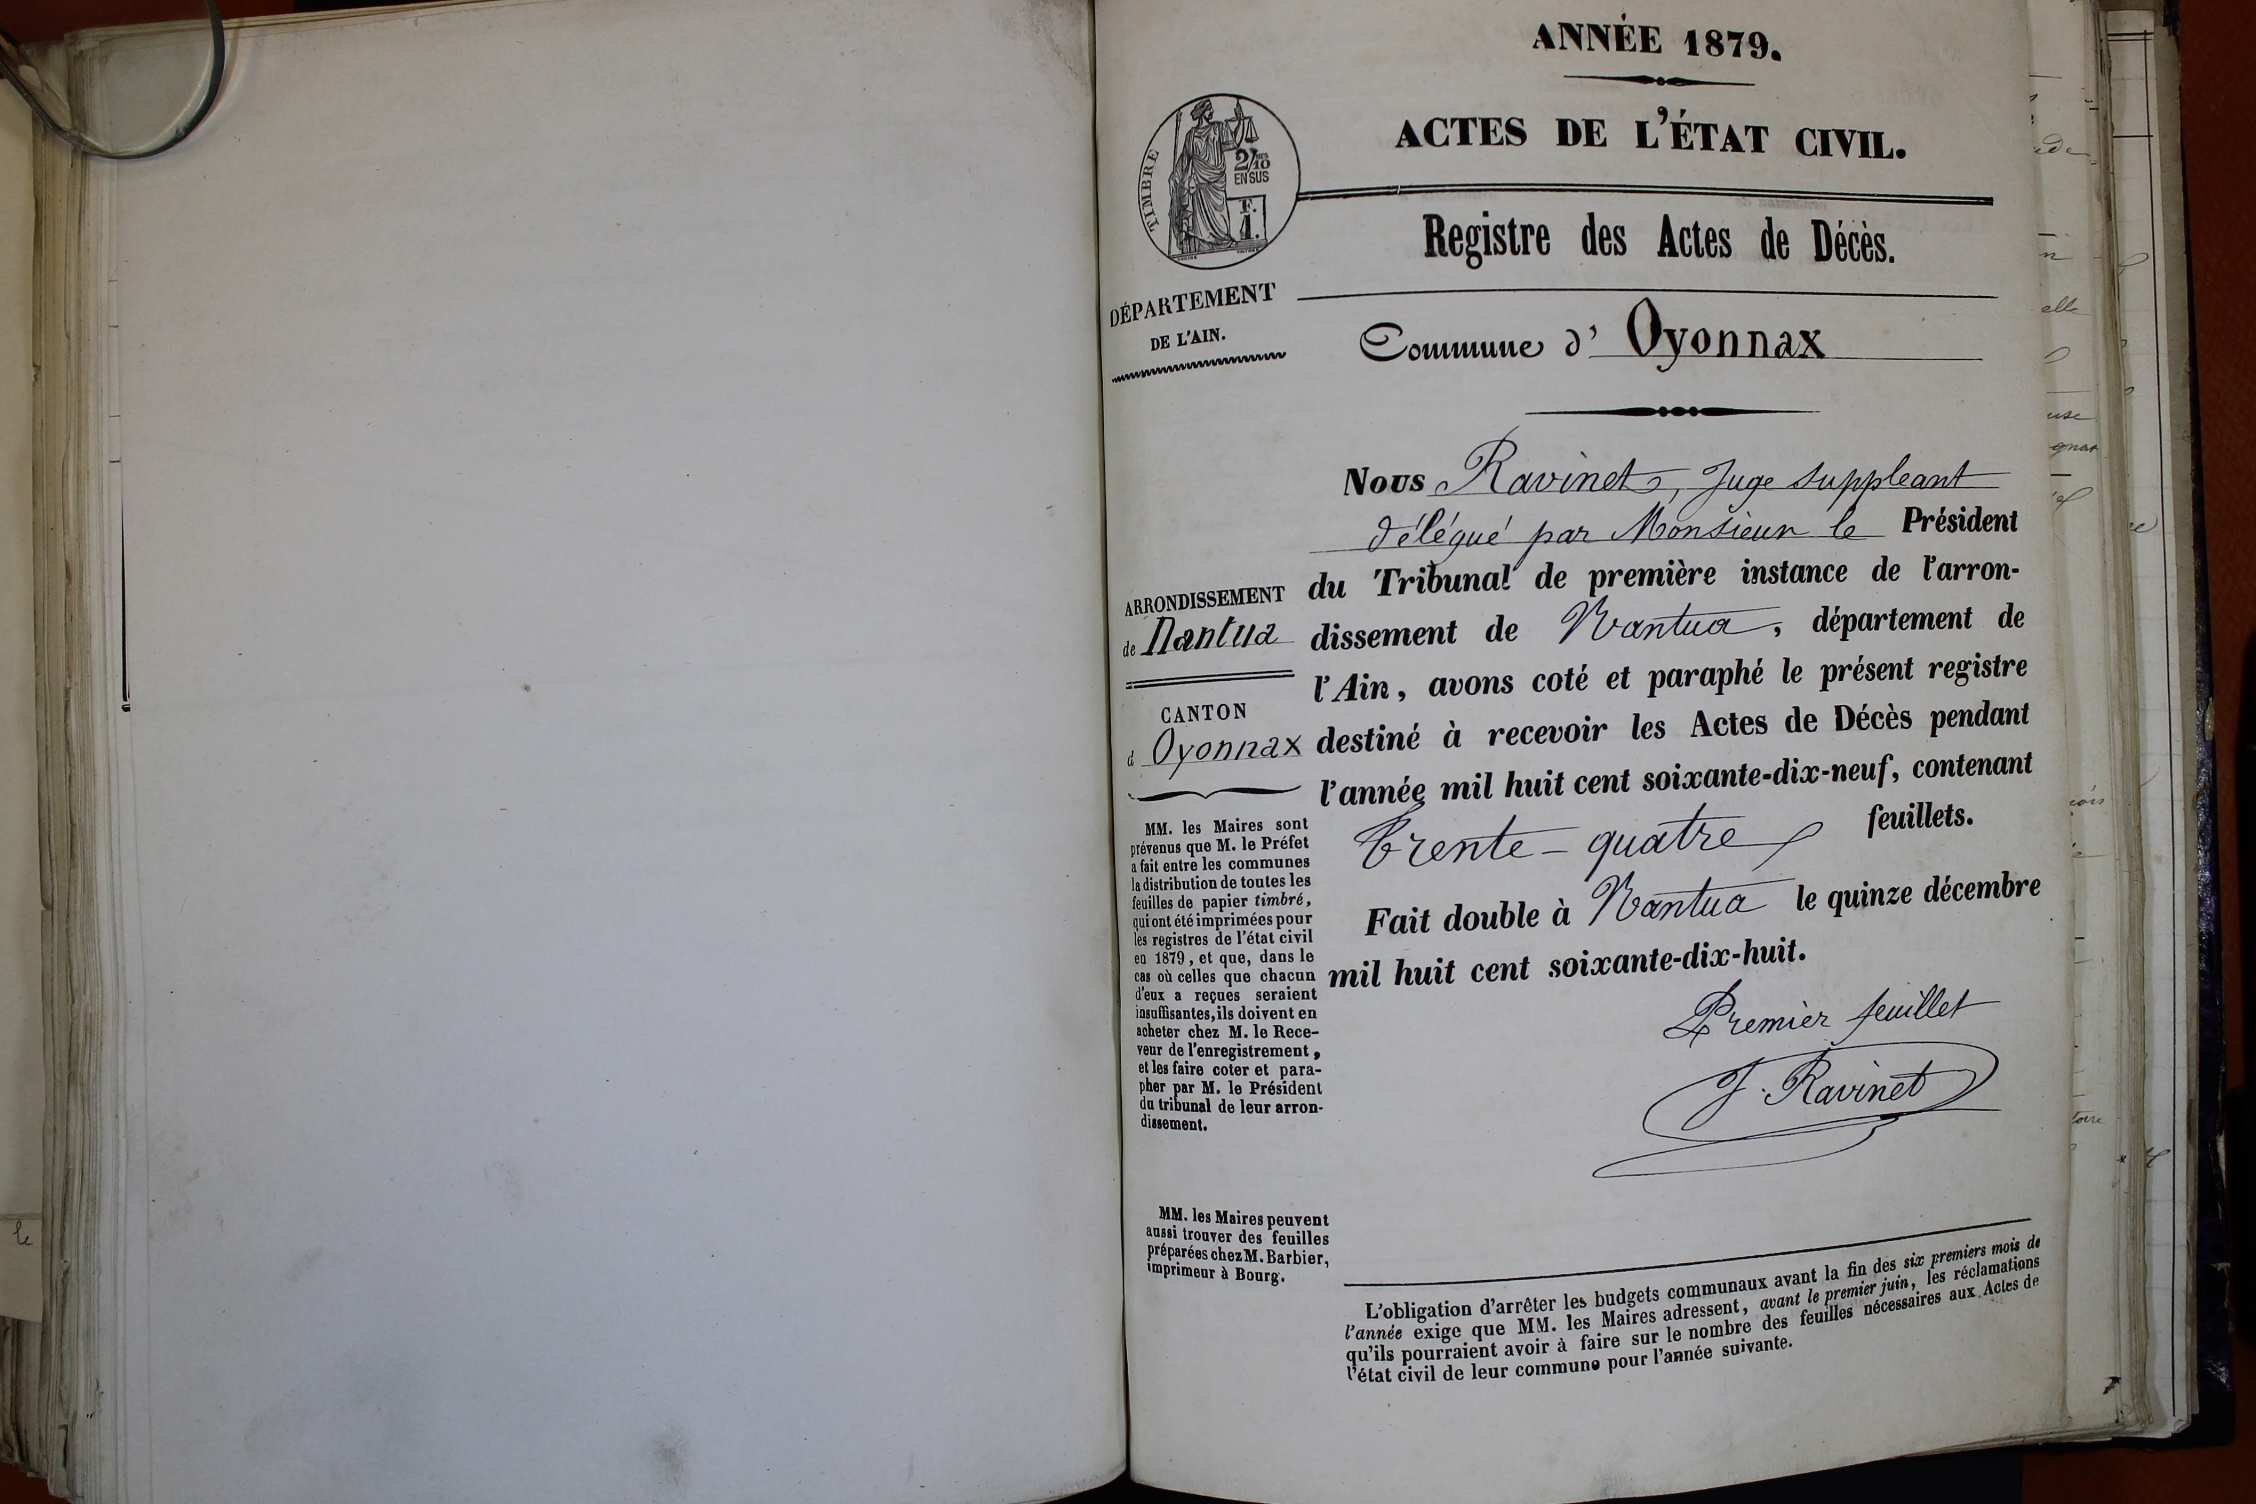 ANNÉE 1879.
ACTES DE L'ÉTAT CIVIL.
TIMBRE
2/10
EN SUS
F.
1.
Registre des Actes de Décès.
DÉPARTEMENT
DE L'AIN.
Commune d' Oyonnax
Nous Ravinet, Juge suppleant
délégué par Monsieur le Président
du Tribunal de première instance de l'arron-
dissement de Nantua, département de
l'Ain, avons coté et paraphé le présent registre
destiné à recevoir les Actes de Décès pendant
l'année mil huit cent soixante-dix-neuf, contenant
Trente-quatre feuillets.
Fait double à Nantua le quinze décembre
mil huit cent soixante-dix-huit.
Premier feuillet
J. Ravinet
ARRONDISSEMENT
de Nantua
CANTON
d Oyonnax
MM. les Maires sont
prévenus que M. le Préfet
a fait entre les communes
la distribution de toutes les
feuilles de papier timbré,
qui ont été imprimées pour
les registres de l'état civil
en 1879, et que, dans le
cas où celles que chacun
d'eux a reçues seraient
insuffisantes, ils doivent en
acheter chez M. le Rece-
veur de l'enregistrement,
et les faire coter et para-
pher par M. le Président
du tribunal de leur arron-
dissement.
MM. les Maires peuvent
aussi trouver des feuilles
préparées chez M. Barbier,
imprimeur à Bourg.
L'obligation d'arrêter les budgets communaux avant la fin des six premiers mois de
l'année exige que MM. les Maires adressent, avant le premier juin, les réclamations
qu'ils pourraient avoir à faire sur le nombre des feuilles nécessaires aux Actes de
l'état civil de leur commune pour l'année suivante.